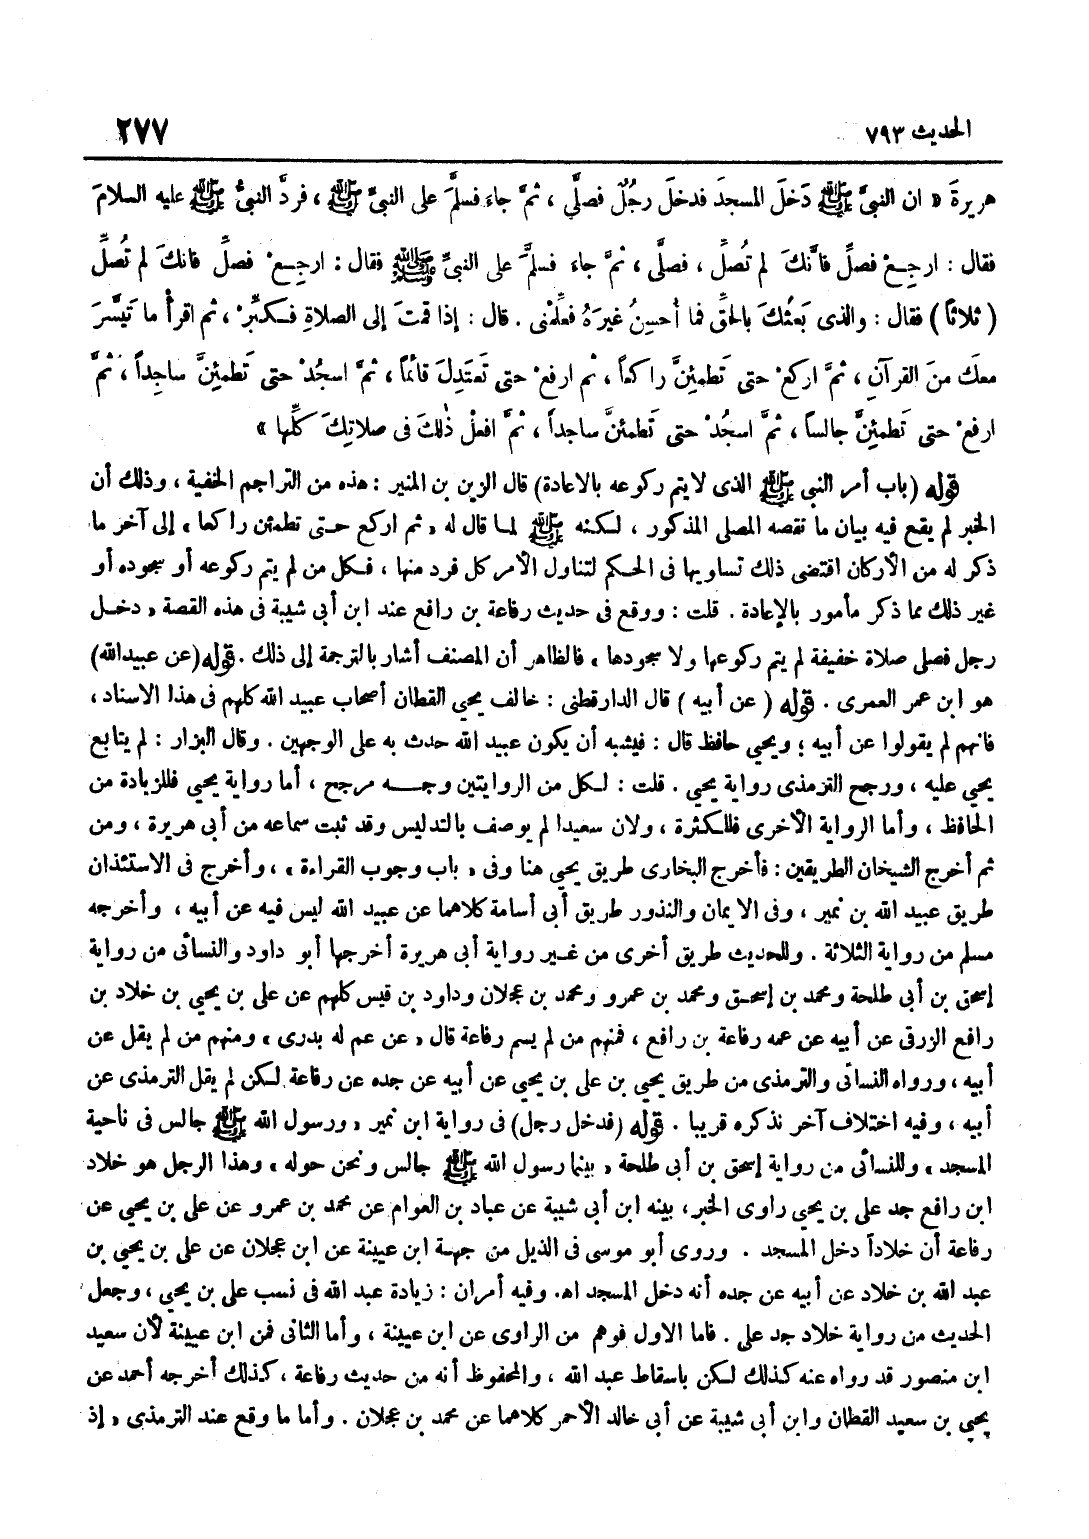 الحديث ٧٩٣
٢٧٧
هريرةَ « ان النبىَّ ﷺ دَخلَ المسجدَ فدخلَ رجُلٌ فصلَّى ، ثمَّ جاءَ فسلَّمَ على النبىِّ ﷺ ، فردَّ النبىُّ ﷺ عليه السلامَ
فقال : ارجِعْ فصلِّ فانَّكَ لم تُصلِّ ، فصلَّى ، ثمَّ جاءَ فسلَّمَ على النبىِّ ﷺ فقال : ارجِعْ فصلِّ فانكَ لم تُصلِّ
( ثلاثاً ) فقال : والذى بَعثَكَ بالحقِّ فما أُحسِنُ غيرَهُ فعلِّمْنى . قال : إذا قمتَ إلى الصلاةِ فكبِّرْ ، ثم اقرأْ ما تَيسَّرَ
معكَ منَ القرآنِ ، ثمَّ اركعْ حتى تَطمئِنَّ راكعاً ، ثم ارفعْ حتى تَعتدِلَ قائماً ، ثمَّ اسجُدْ حتى تَطمئِنَّ ساجِداً ، ثمَّ
ارفعْ حتى تَطمئِنَّ جالساً ، ثمَّ اسجُدْ حتى تَطمئنَّ ساجداً ، ثمَّ افعلْ ذٰلكَ فى صلاتِكَ كلِّها »
قوله (باب أمر النبى ﷺ الذى لا يتم ركوعه بالاعادة) قال الزين بن المنير : هذه من التراجم الخفية ، وذلك أن
الخبر لم يقع فيه بيان ما نقصه المصلى المذكور ، لكنه ﷺ لما قال له « ثم اركع حتى تطمئن راكعا » إلى آخر ما
ذكر له من الأركان اقتضى ذلك تساويها فى الحكم لتناول الأمر كل فرد منها ، فكل من لم يتم ركوعه أو سجوده أو
غير ذلك مما ذكر مأمور بالإعادة . قلت : ووقع فى حديث رفاعة بن رافع عند ابن أبى شيبة فى هذه القصة « دخل
رجل فصلى صلاة خفيفة لم يتم ركوعها ولا سجودها » فالظاهر أن المصنف أشار بالترجمة إلى ذلك . قوله (عن عبيدالله)
هو ابن عمر العمرى . قوله ( عن أبيه ) قال الدارقطنى : خالف يحيى القطان أصحاب عبيد الله كلهم فى هذا الاسناد ،
فانهم لم يقولوا عن أبيه ؛ ويحيى حافظ قال : فيشبه أن يكون عبيد الله حدث به على الوجهين . وقال البزار : لم يتابع
يحيى عليه ، ورجح الترمذى رواية يحيى . قلت : لكل من الروايتين وجه مرجح ، أما رواية يحيى فللزيادة من
الحافظ ، وأما الرواية الأخرى فللكثرة ، ولان سعيدا لم يوصف بالتدليس وقد ثبت سماعه من أبى هريرة ، ومن
ثم أخرج الشيخان الطريقين : فأخرج البخارى طريق يحيى هنا وفى « باب وجوب القراءة » ، وأخرج فى الاستئذان
طريق عبيد الله بن نمير ، وفى الايمان والنذور طريق أبى أسامة كلاهما عن عبيد الله ليس فيه عن أبيه ، وأخرجه
مسلم من رواية الثلاثة . وللحديث طريق أخرى من غير رواية أبى هريرة أخرجها أبو داود والنسائى من رواية
إسحق بن أبى طلحة ومحمد بن إسحق ومحمد بن عمرو ومحمد بن عجلان وداود بن قيس كلهم عن على بن يحيى بن خلاد بن
رافع الزرقى عن أبيه عن عمه رفاعة بن رافع ، فمنهم من لم يسم رفاعة قال « عن عم له بدرى » ومنهم من لم يقل عن
أبيه ، ورواه النسائى والترمذى من طريق يحيى بن على بن يحيى عن أبيه عن جده عن رفاعة لكن لم يقل الترمذى عن
أبيه ، وفيه اختلاف آخر نذكره قريبا . قوله (فدخل رجل) فى رواية ابن نمير « ورسول الله ﷺ جالس فى ناحية
المسجد » وللنسائى من رواية إسحق بن أبى طلحة « بينما رسول الله ﷺ جالس ونحن حوله » وهذا الرجل هو خلاد
ابن رافع جد على بن يحيى راوى الخبر ، بينه ابن أبى شيبة عن عباد بن العوام عن محمد بن عمرو عن على بن يحيى عن
رفاعة أن خلاداً دخل المسجد . وروى أبو موسى فى الذيل من جهة ابن عيينة عن ابن عجلان عن على بن يحيى بن
عبد الله بن خلاد عن أبيه عن جده أنه دخل المسجد اه. وفيه أمران : زيادة عبد الله فى نسب على بن يحيى ، وجعل
الحديث من رواية خلاد جد على . فاما الاول فوهم من الراوى عن ابن عيينة ، وأما الثانى فمن ابن عيينة لأن سعيد
ابن منصور قد رواه عنه كذلك لكن باسقاط عبد الله ، والمحفوظ أنه من حديث رفاعة ، كذلك أخرجه أحمد عن
يحيى بن سعيد القطان وابن أبى شيبة عن أبى خالد الأحمر كلاهما عن محمد بن عجلان . وأما ما وقع عند الترمذى « إذ